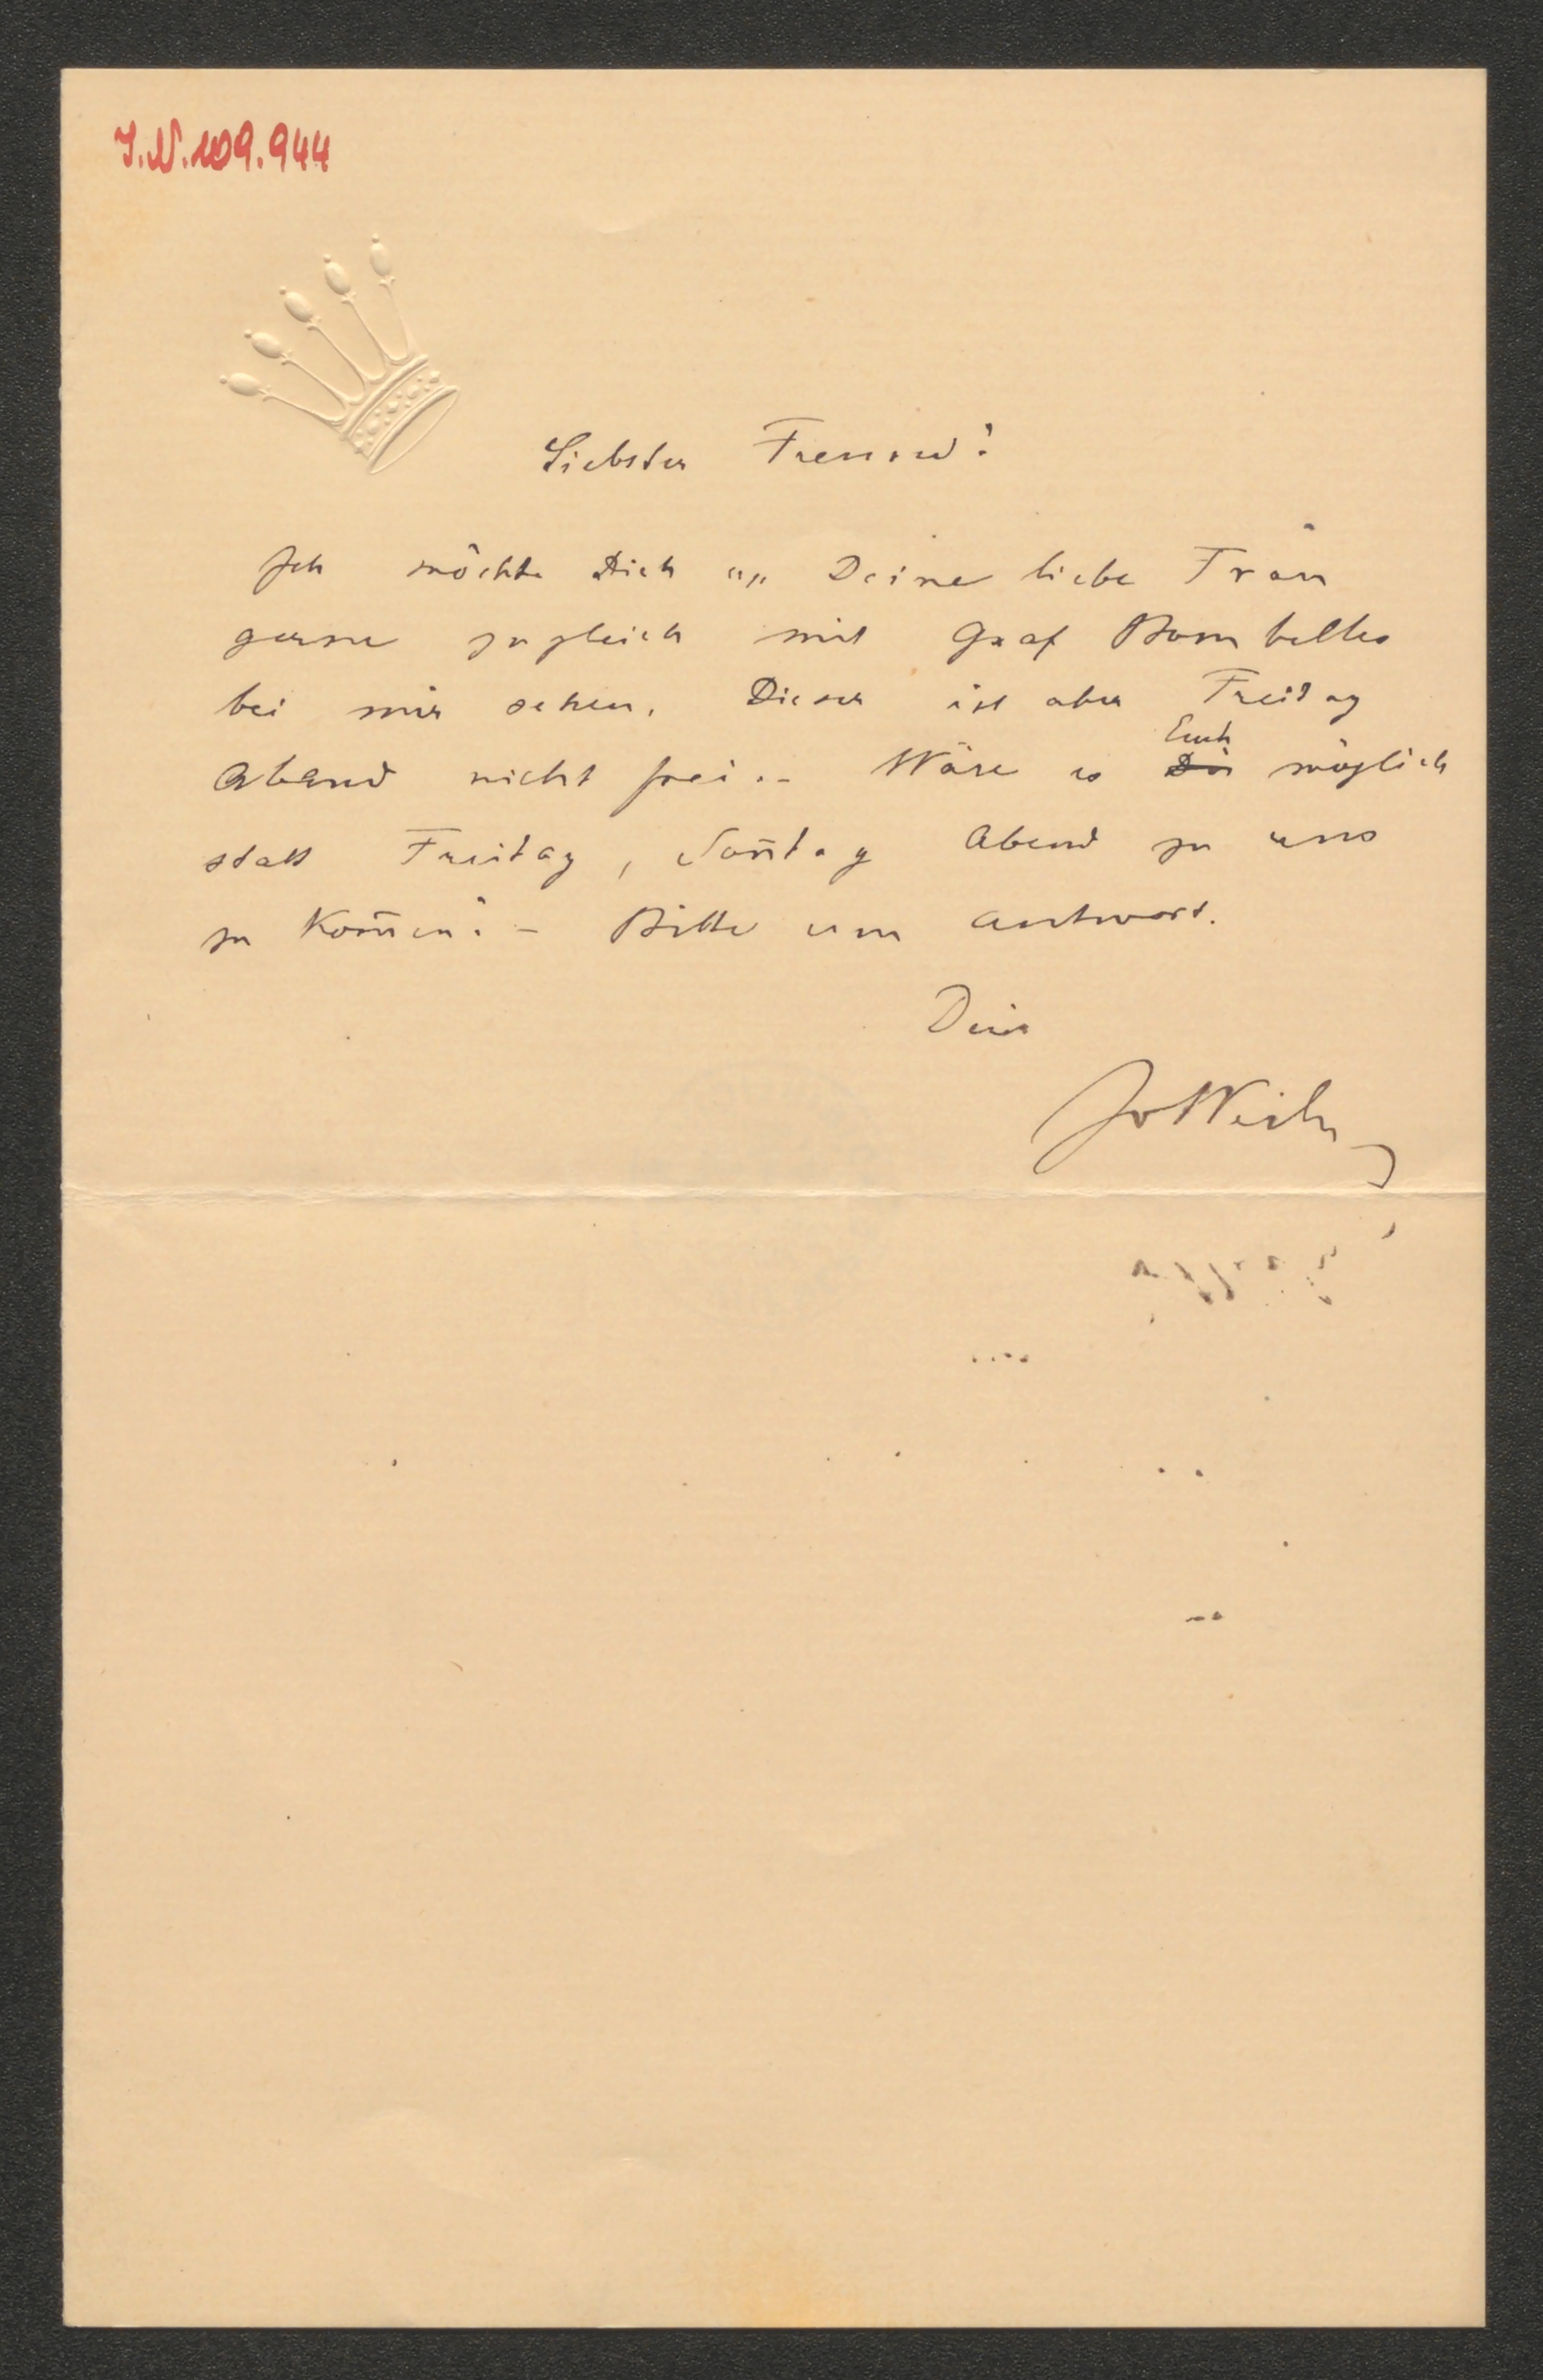 I.N. 109.944
Liebster Freund!
Ich möchte Dich u. Deine liebe Frau
gerne zugleich mit Graf Bombelles
bei mir sehen. Dieser ist aber Freitag
Abend nicht frei. – Wäre es Dir Euch möglich
statt Freitag, Son̄tag Abend zu uns
zu kom̄en? – Bitte um Antwort.
Dein